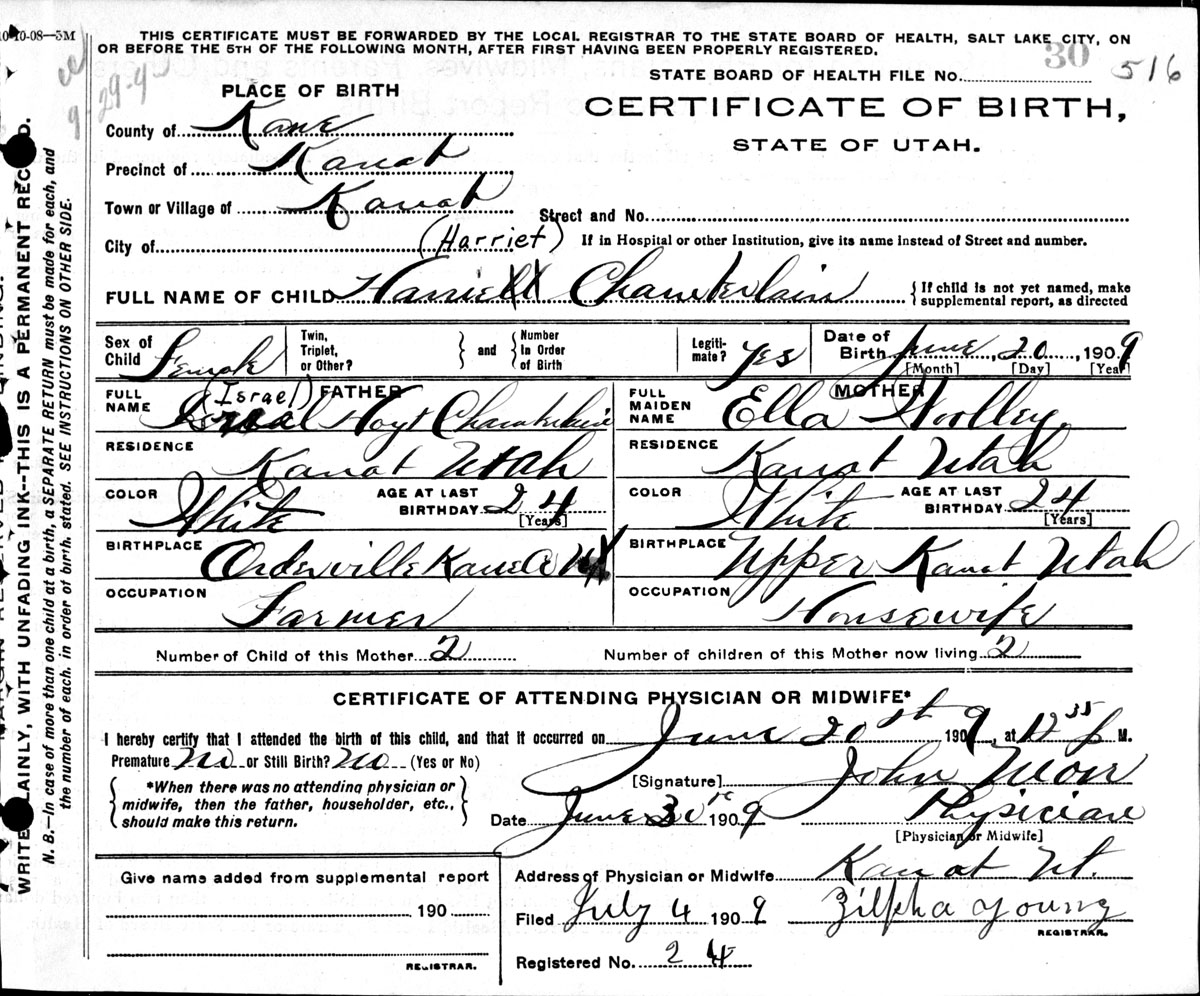 10-10-08—3M
THIS CERTIFICATE MUST BE FORWARDED BY THE LOCAL REGISTRAR TO THE STATE BOARD OF HEALTH, SALT LAKE CITY, ON
OR BEFORE THE 5TH OF THE FOLLOWING MONTH, AFTER FIRST HAVING BEEN PROPERLY REGISTERED.
30
STATE BOARD OF HEALTH FILE No. 516
9-29-4
PLACE OF BIRTH
CERTIFICATE OF BIRTH,
STATE OF UTAH.
County of Kane
Precinct of Kanab
Town or Village of Kanab
Street and No.
City of
(Harriet)
If in Hospital or other Institution, give its name instead of Street and number.
FULL NAME OF CHILD Harriett Chamberlain
{If child is not yet named, make
supplemental report, as directed
Sex of Child Female
Twin, Triplet, or Other?
} and {
Number In Order of Birth
Legiti-mate? yes
Date of Birth June, 20, 1909
[Month] [Day] [Year]
FATHER
FULL NAME (Israel) Hoyt Chamberlain
RESIDENCE Kanab Utah
COLOR White
AGE AT LAST BIRTHDAY 24
[Years]
BIRTHPLACE Orderville Kane Co Ut
OCCUPATION Farmer
MOTHER
FULL MAIDEN NAME Ella Woolley
RESIDENCE Kanab Utah
COLOR White
AGE AT LAST BIRTHDAY 24
[Years]
BIRTHPLACE Upper Kanab Utah
OCCUPATION Housewife
Number of Child of this Mother 2
Number of children of this Mother now living 2
CERTIFICATE OF ATTENDING PHYSICIAN OR MIDWIFE*
I hereby certify that I attended the birth of this child, and that it occurred on June 20st 1909, at 12 35 p M.
Premature No or Still Birth? No (Yes or No)
{*When there was no attending physician or
midwife, then the father, householder, etc.,
should make this return.}
[Signature] John
Date June 30 1909
Physician
[Physician or Midwife]
Give name added from supplemental report
190
REGISTRAR.
Address of Physician or Midwife Kanab Ut.
Filed July 4 1909 Zilpha Young
REGISTRAR.
Registered No. 24
WRITE PLAINLY, WITH UNFADING INK—THIS IS A PERMANENT RECORD.
N. B.—In case of more than one child at a birth, a SEPARATE RETURN must be made for each, and
the number of each, in order of birth, stated. SEE INSTRUCTIONS ON OTHER SIDE.